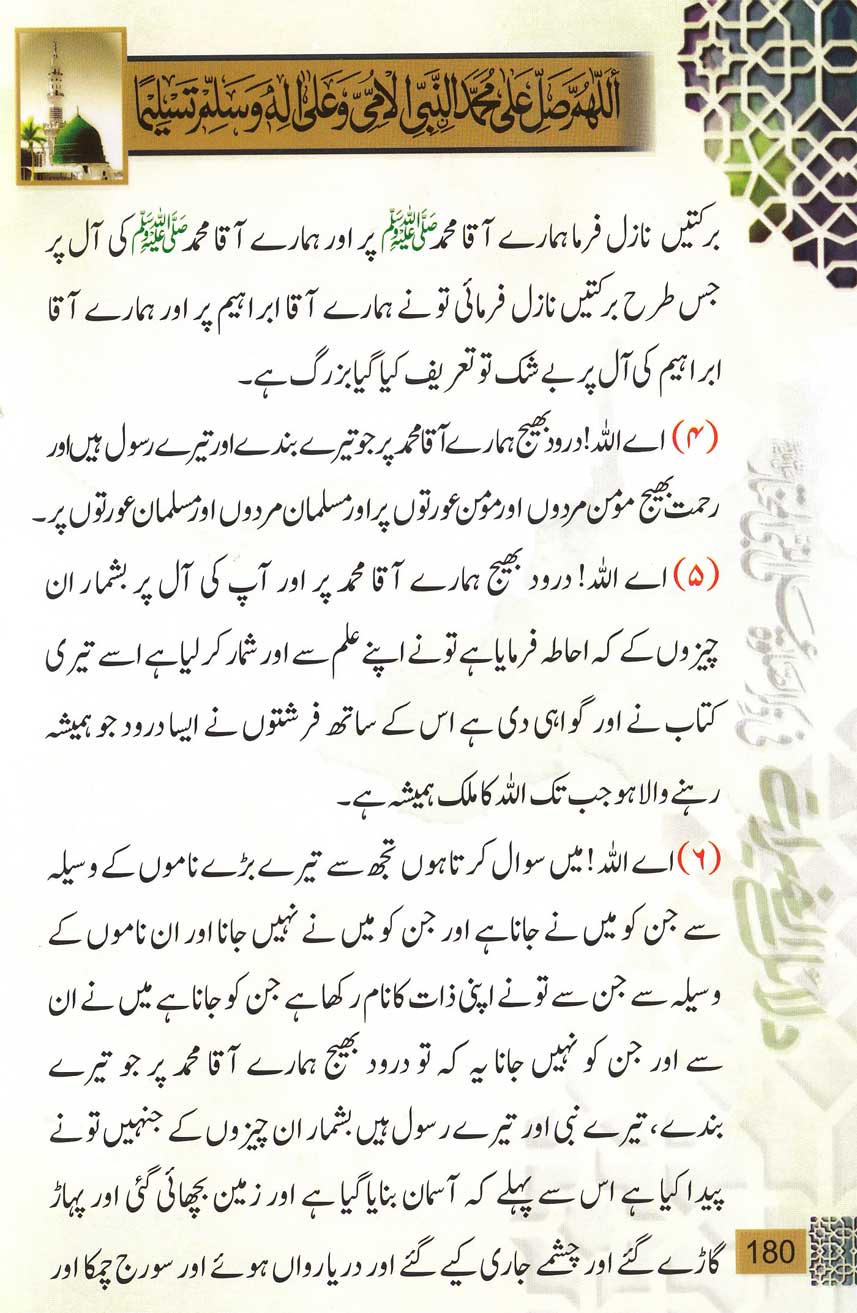 اَللّٰهُمَّ صَلِّ عَلٰى مُحَمَّدِ النَّبِيِّ الْاُمِّيِّ وَعَلٰى اٰلِهٖ وَسَلِّمْ تَسْلِيْمًا
برکتیں نازل فرما ہمارے آقا محمد ﷺ پر اور ہمارے آقا محمد ﷺ کی آل پر
جس طرح برکتیں نازل فرمائی تو نے ہمارے آقا ابراہیم پر اور ہمارے آقا
ابراہیم کی آل پر بے شک تو تعریف کیا گیا بزرگ ہے۔
(۴) اے اللہ! درود بھیج ہمارے آقا محمد پر جو تیرے بندے اور تیرے رسول ہیں اور
رحمت بھیج مومن مردوں اور مومن عورتوں پر اور مسلمان مردوں اور مسلمان عورتوں پر۔
(۵) اے اللہ! درود بھیج ہمارے آقا محمد پر اور آپ کی آل پر بشمار ان
چیزوں کے کہ احاطہ فرمایا ہے تو نے اپنے علم سے اور شمار کر لیا ہے اسے تیری
کتاب نے اور گواہی دی ہے اس کے ساتھ فرشتوں نے ایسا درود جو ہمیشہ
رہنے والا ہو جب تک اللہ کا ملک ہمیشہ ہے۔
(۶) اے اللہ! میں سوال کرتا ہوں تجھ سے تیرے بڑے ناموں کے وسیلہ
سے جن کو میں نے جانا ہے اور جن کو میں نے نہیں جانا اور ان ناموں کے
وسیلہ سے جن سے تو نے اپنی ذات کا نام رکھا ہے جن کو جانا ہے میں نے ان
سے اور جن کو نہیں جانا یہ کہ تو درود بھیج ہمارے آقا محمد پر جو تیرے
بندے، تیرے نبی اور تیرے رسول ہیں بشمار ان چیزوں کے جنہیں تو نے
پیدا کیا ہے اس سے پہلے کہ آسمان بنایا گیا ہے اور زمین بچھائی گئی اور پہاڑ
گاڑے گئے اور چشمے جاری کیے گئے اور دریا رواں ہوئے اور سورج چمکا اور
دلائل الخیرات
180